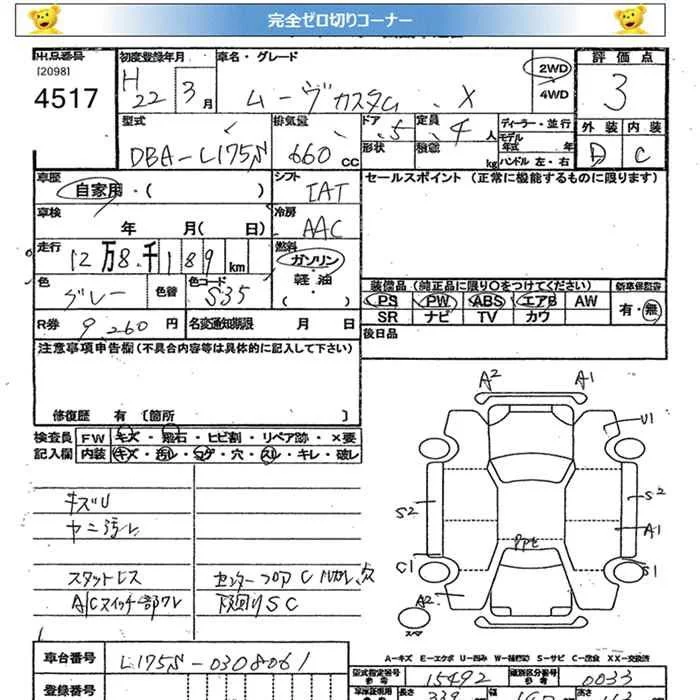 完全ゼロ切りコーナー
出品番号
[2098]
4517
初度登録年月
H 22 3月
車名・グレード
ムーヴカスタム X
2WD
4WD
評価点
3
外装 内装
D C
型式
DBA-L175S
排気量
660 cc
ドア 5
形状
定員 4 人
積載 kg
ディーラー・並行
モデル
年式 年
ハンドル 左・右
車歴
自家用・( )
シフト
IAT
セールスポイント (正常に機能するものに限ります)
車検
年 月( 日)
冷房
AAC
走行
12万8千189 km
燃料
ガソリン
軽油
( )
色
グレー
色替
色コード
S35
装備品(純正品に限り○をつけてください)
新車保証書
PS PW ABS エアB AW
SR ナビ TV カワ
有・無
R券 9260円
名変通知期限 月 日
後日品
注意事項申告欄(不具合内容等は具体的に記入して下さい)
修復歴 有 〔箇所 〕
検査員
記入欄
FW キズ・飛石・ヒビ割・リペア跡・×要
内装 キズ・汚レ・コゲ・穴・スレ・キレ・破レ
キズU
ヤニ汚レ
スタットレス
A/Cスイッチ部ワレ
センターフロアC
下回りSC
A2 A1
U1
S2 S2
A1
C1 S1
A2
スペア
A-キズ E-エクボ U-凹み W-補修跡 S-サビ C-腐食 XX-交換済
車台番号
L175S-0308061
登録番号
型式指定番号
参考
15492
類別区分番号
参考
0033
長さ 339 幅 高さ